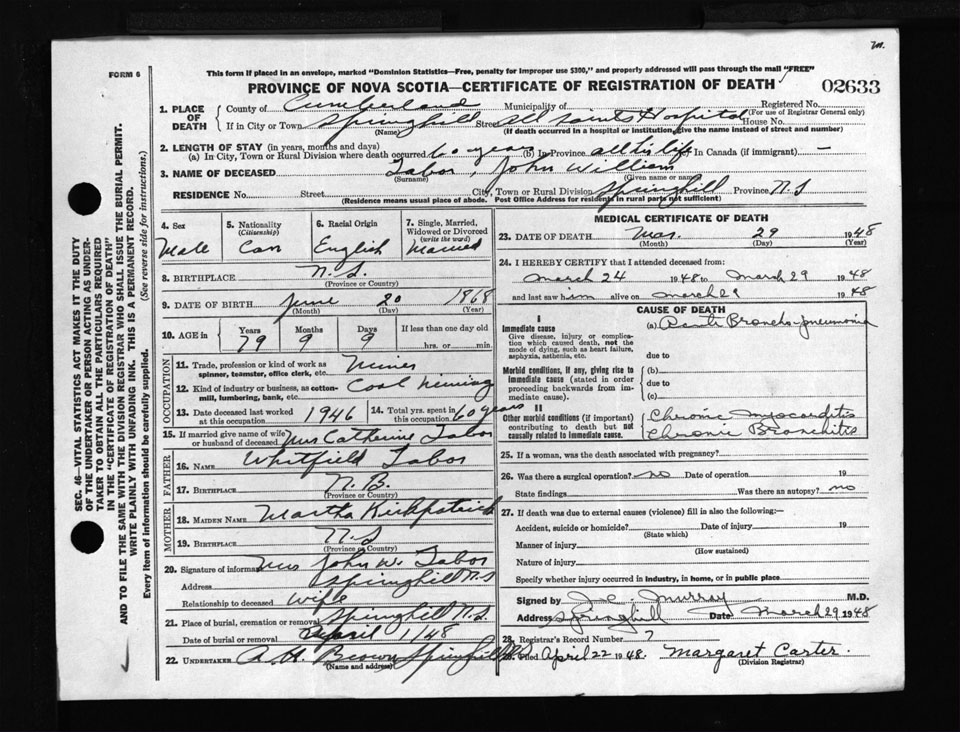 m.
FORM 6
This form if placed in an envelope, marked "Dominion Statistics—Free, penalty for improper use $300," and properly addressed will pass through the mail "FREE"
PROVINCE OF NOVA SCOTIA—CERTIFICATE OF REGISTRATION OF DEATH
02633
1. PLACE OF DEATH
County of Cumberland Municipality of Registered No.
(For use of Registrar General only)
If in City or Town Springhill Street All Saints Hospital House No.
(Name) (If death occurred in a hospital or institution, give the name instead of street and number)
2. LENGTH OF STAY (in years, months and days)
(a) In City, Town or Rural Division where death occurred 60 years (b) In Province all his life In Canada (if immigrant) —
3. NAME OF DECEASED Tabor, John William
(Surname) (Given name or names)
RESIDENCE No. Street City, Town or Rural Division Springhill Province N.S
(Residence means usual place of abode. Post Office Address for residents in rural parts not sufficient)
4. Sex
Male
5. Nationality
(Citizenship)
Can
6. Racial Origin
English
7. Single, Married, Widowed or Divorced
(write the word)
Married
8. BIRTHPLACE N.S.
(Province or Country)
9. DATE OF BIRTH June 20 1868
(Month) (Day) (Year)
10. AGE in Years Months Days If less than one day old
79 9 9 hrs. or min.
OCCUPATION
11. Trade, profession or kind of work as spinner, teamster, office clerk, etc. Miner
12. Kind of industry or business, as cotton-mill, lumbering, bank, etc. Coal mining
13. Date deceased last worked at this occupation 1946
14. Total yrs. spent in this occupation 60 years
15. If married give name of wife or husband of deceased. Mrs Catherine Tabor
FATHER
16. NAME Whitfield Tabor
17. BIRTHPLACE N.B.
(Province or Country)
MOTHER
18. MAIDEN NAME Martha Kirkpatrick
19. BIRTHPLACE N.S
(Province or Country)
20. Signature of informant Mrs John W. Tabor
Address Springhill N.S
Relationship to deceased wife
21. Place of burial, cremation or removal Springhill N.S.
Date of burial or removal April 1/48
22. UNDERTAKER A. H. Brown Springhill
(Name and address)
MEDICAL CERTIFICATE OF DEATH
23. DATE OF DEATH Mar. 29 1948
(Month) (Day) (Year)
24. I HEREBY CERTIFY that I attended deceased from:
March 24 1948 to March 29 1948
and last saw him alive on March 29 1948
CAUSE OF DEATH
I
Immediate cause
Give disease, injury or complication which caused death, not the mode of dying, such as heart failure, asphyxia, asthenia, etc.
(a) Acute Broncho-pneumonia
due to
Morbid conditions, if any, giving rise to immediate cause (stated in order proceeding backwards from immediate cause).
(b)
due to
(c)
II
Other morbid conditions (if important) contributing to death but not causally related to immediate cause.
Chronic Myocarditis
Chronic Bronchitis
25. If a woman, was the death associated with pregnancy?
26. Was there a surgical operation? no Date of operation 19
State findings Was there an autopsy? no
27. If death was due to external causes (violence) fill in also the following:—
Accident, suicide or homicide? Date of injury 19
(State which)
Manner of injury
(How sustained)
Nature of injury
Specify whether injury occurred in industry, in home, or in public place
Signed by Murray M.D.
Address Springhill Date March 29 1948
28. Registrar's Record Number 7
29. Filed April 22 1948. Margaret Carter.
(Division Registrar)
SEC. 46—VITAL STATISTICS ACT MAKES IT THE DUTY
OF THE UNDERTAKER OR PERSON ACTING AS UNDER-
TAKER TO OBTAIN ALL THE PARTICULARS REQUIRED
IN THE "CERTIFICATE OF REGISTRATION OF DEATH"
AND TO FILE THE SAME WITH THE DIVISION REGISTRAR WHO SHALL ISSUE THE BURIAL PERMIT.
WRITE PLAINLY WITH UNFADING INK. THIS IS A PERMANENT RECORD.
Every item of information should be carefully supplied. (See reverse side for instructions.)